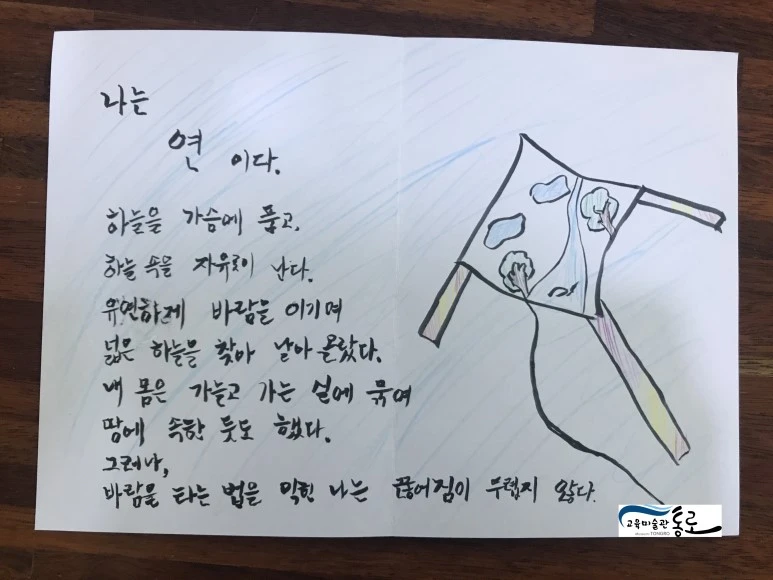 나는
연 이다.
하늘을 가슴에 품고,
하늘 속을 자유로이 난다.
유연하게 바람을 이기며
넓은 하늘을 찾아 날아 올랐다.
내 몸은 가늘고 가는 실에 묶여
땅에 속한 듯도 했다.
그러나,
바람을 타는 법을 익힌 나는 끊어짐이 두렵지 않다.
교육미술관 통로
Museum TONGRO